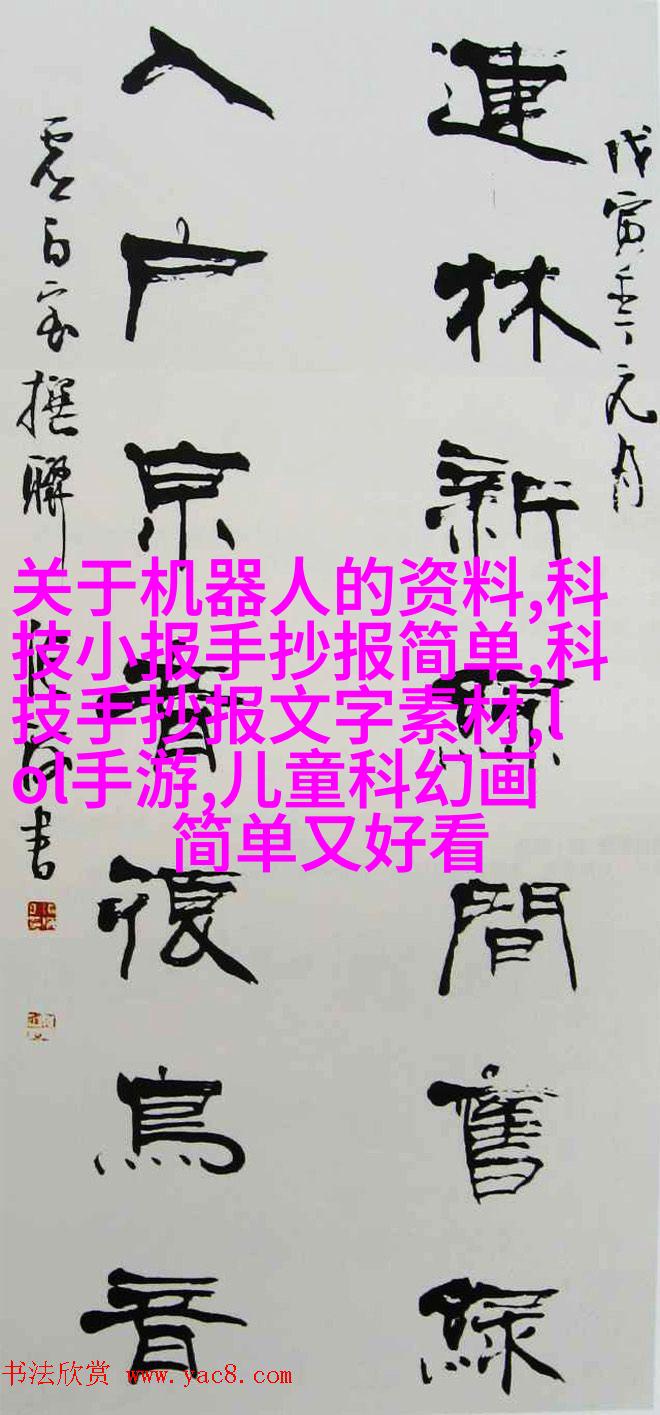 戊寅年元月
連林新綠間舊綠
入户京音鳥音
撰聯書
关于机器人的资料,科
技小报手抄报简单,科
技手抄报文字素材,l
ol手游,儿童科幻画
简单又好看
书法欣赏 www.yac8.com